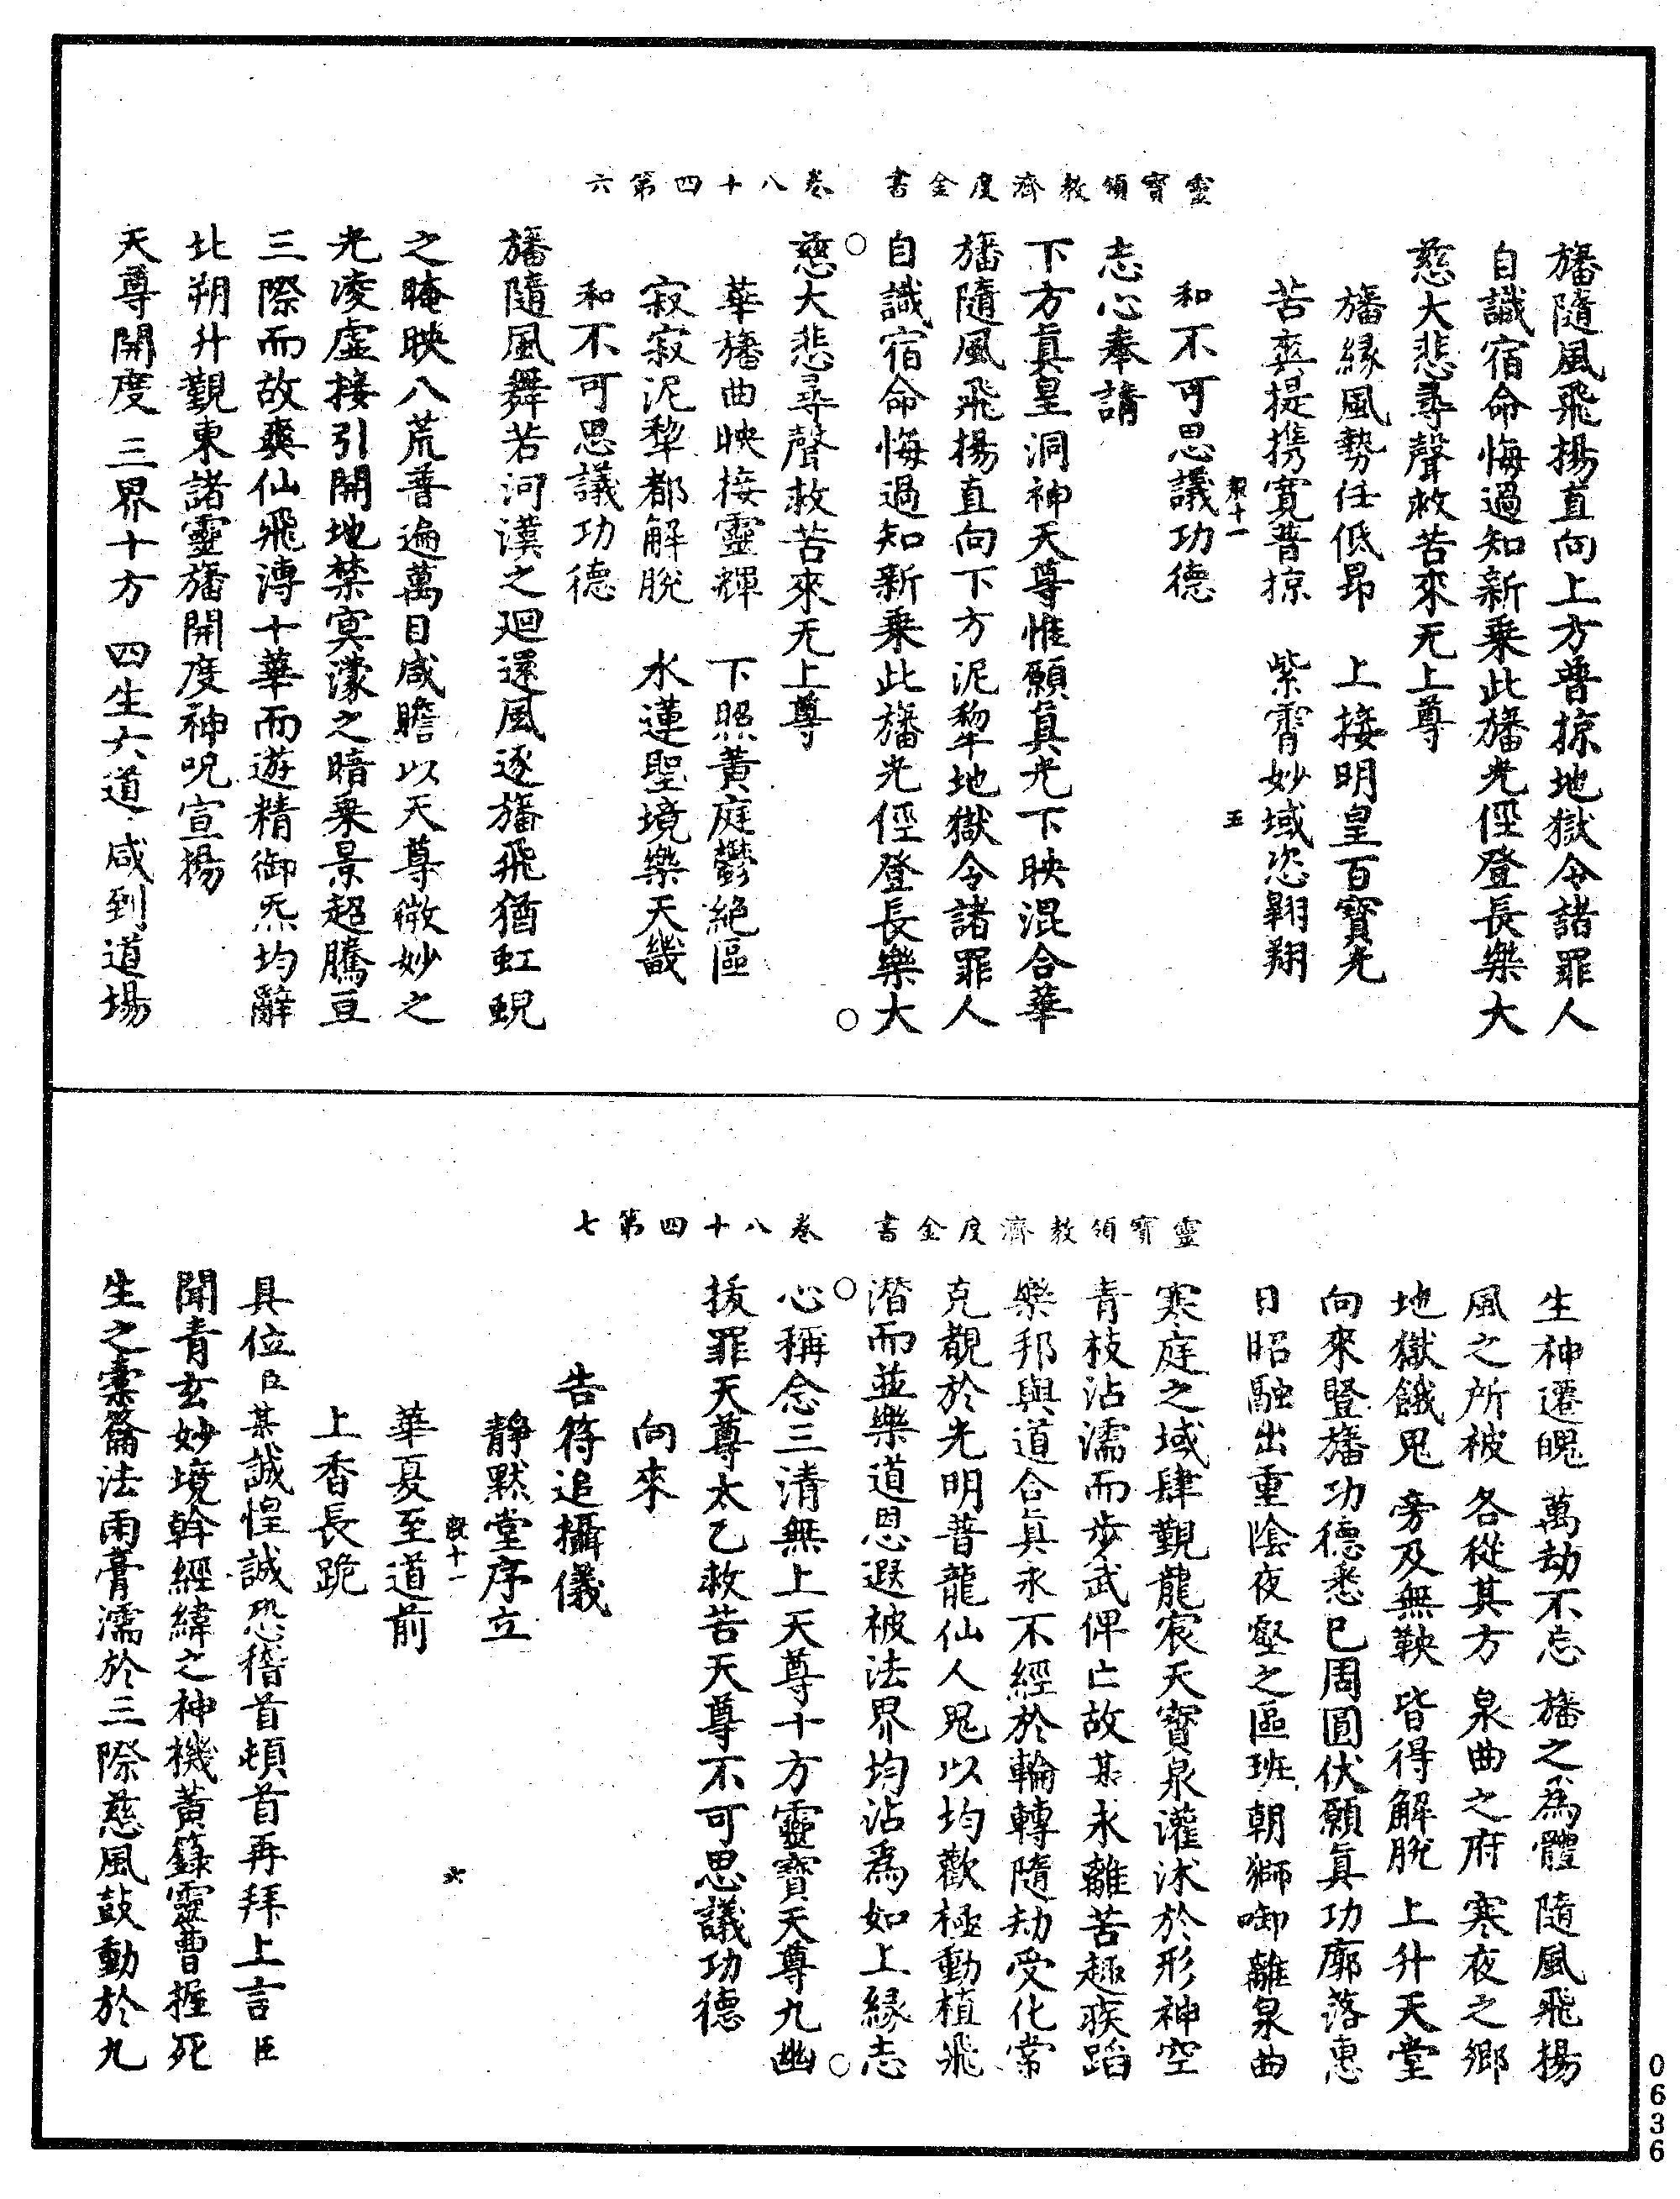 靈寶領教濟度金書 卷八十四第六
旛隨風飛揚直向上方普掠地獄令諸罪人
自識宿命悔過知新乘此旛光徑登長樂大
慈大悲尋聲救苦來无上尊
旛緣風勢任低昂 上接明皇百寶光
苦爽提携寬普掠 紫霄妙域恣翱翔
五
和不可思議功德
志心奉請
下方眞皇洞神天尊惟願眞光下映混合華
旛隨風飛揚直向下方泥犂地獄令諸罪人
自識宿命悔過知新乘此旛光徑登長樂大
慈大悲尋聲救苦來无上尊
華旛曲映接靈輝 下照黃庭鬱絕區
寂寂泥犂都解脫 水蓮聖境樂天畿
和不可思議功德
旛隨風舞若河漢之迴還風逐旛飛猶虹蜺
之晻映八荒普遍萬目咸瞻以天尊微妙之
光凌虛接引開地禁冥濛之暗乘景超騰亘
三際而故爽仙飛漙十華而遊精御炁均辭
北朔升觀東諸靈旛開度神呪宣揚
天尊開度 三界十方 四生六道 咸到道場
靈寶領教濟度金書 卷八十四第七
生神遷魄 萬劫不忘 旛之爲體 隨風飛揚
風之所被 各從其方 泉曲之府 寒夜之鄉
地獄餓鬼 旁及無鞅 皆得解脫 上升天堂
向來豎旛功德悉已周圓伏願眞功廓落惠
日昭融出重陰夜壑之區班朝獅唧離泉曲
寒庭之域肆觀龍宸天寶泉灌沭於形神空
青枝沾濡而步武俾亡故某永離苦趣疾蹈
樂邦與道合眞永不經於輪轉隨劫受化常
克覩於光明普龍仙人鬼以均歡極動植飛
潛而並樂道恩遐被法界均沾爲如上緣志
心稱念三清無上天尊十方靈寶天尊九幽
拔罪天尊太乙救苦天尊不可思議功德
向來
告符追攝儀
靜默堂序立
華夏至道前
六
上香長跪
具位臣某誠惶誠恐稽首頓首再拜上言臣
聞青玄妙境斡經緯之神機黃籙靈曹握死
生之橐籥法雨膏濡於三際慈風鼓動於九
0636